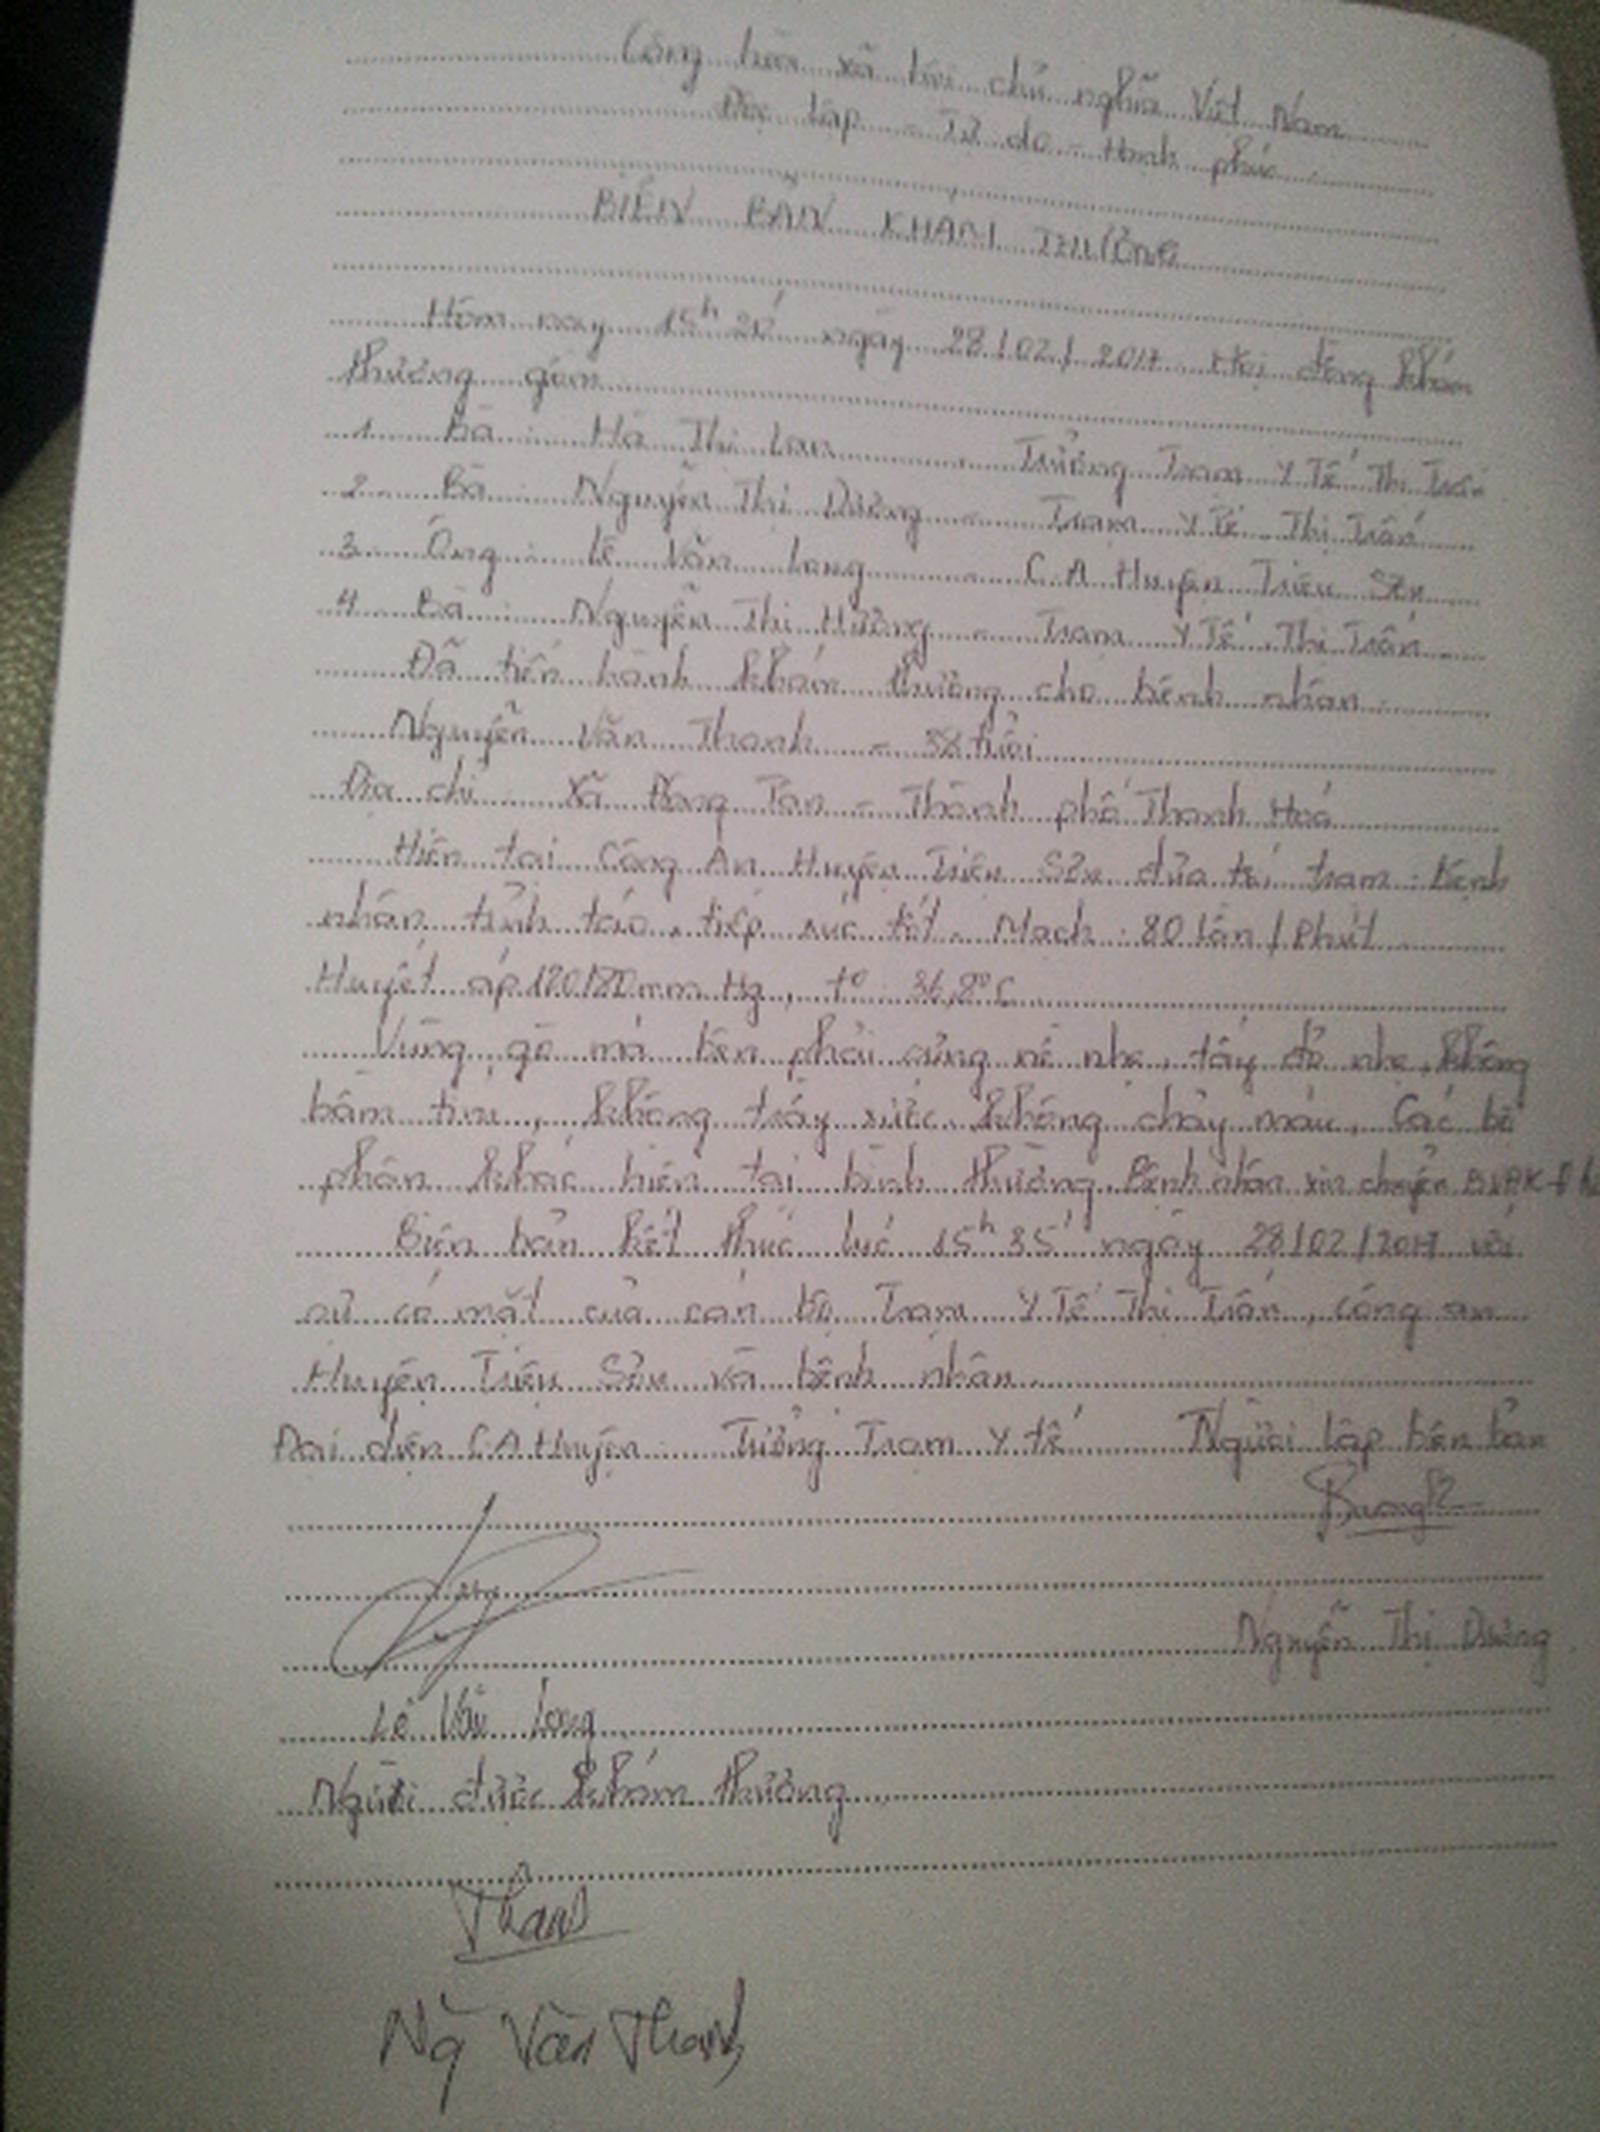 Cộng hòa xã hội chủ nghĩa Việt Nam
Độc lập - Tự do - Hạnh phúc
BIÊN BẢN KHÁM THƯƠNG
Hôm nay 15h20' ngày 28/02/2017 Hội đồng khám
thương gồm
1. Bà: Hà Thị Lan - Trưởng Trạm Y Tế Thị Trấn
2. Bà: Nguyễn Thị Dương - Trạm Y Tế Thị Trấn
3. Ông: Lê Văn Long - C.A Huyện Triệu Sơn
4. Bà: Nguyễn Thị Hương - Trạm Y Tế Thị Trấn
Đã tiến hành khám thương cho bệnh nhân
Nguyễn Văn Thanh - 38 tuổi
Địa chỉ: Xã Đông Tân - Thành phố Thanh Hoá
Hiện tại Công An Huyện Triệu Sơn đưa tới trạm: Bệnh
nhân tỉnh táo, tiếp xúc tốt. Mạch: 80 lần/Phút
Huyết áp 120/80 mm Hg, t° 36,8°C
Vùng gò má bên phải sưng nề nhẹ, tấy đỏ nhẹ, không
bầm tím, không trầy xước không chảy máu. Các bộ
phận khác hiện tại bình thường. Bệnh nhân xin chuyển BVĐK
Biên bản kết thúc lúc 15h35' ngày 28/02/2017 với
sự có mặt của cán bộ Trạm Y Tế Thị Trấn, công an
Huyện Triệu Sơn và bệnh nhân.
Đại diện C.A Huyện Trưởng Trạm Y tế Người lập biên bản
Nguyễn Thị Dương
Lê Văn Long
Người được khám thương
Thanh
Ng Văn Thanh